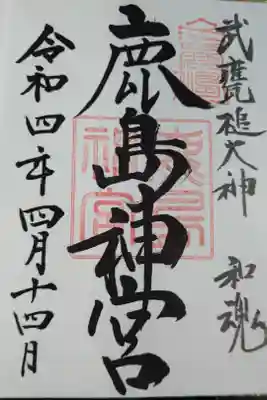 武甕槌大神 和魂
鹿島神宮
令和四年四月十四日